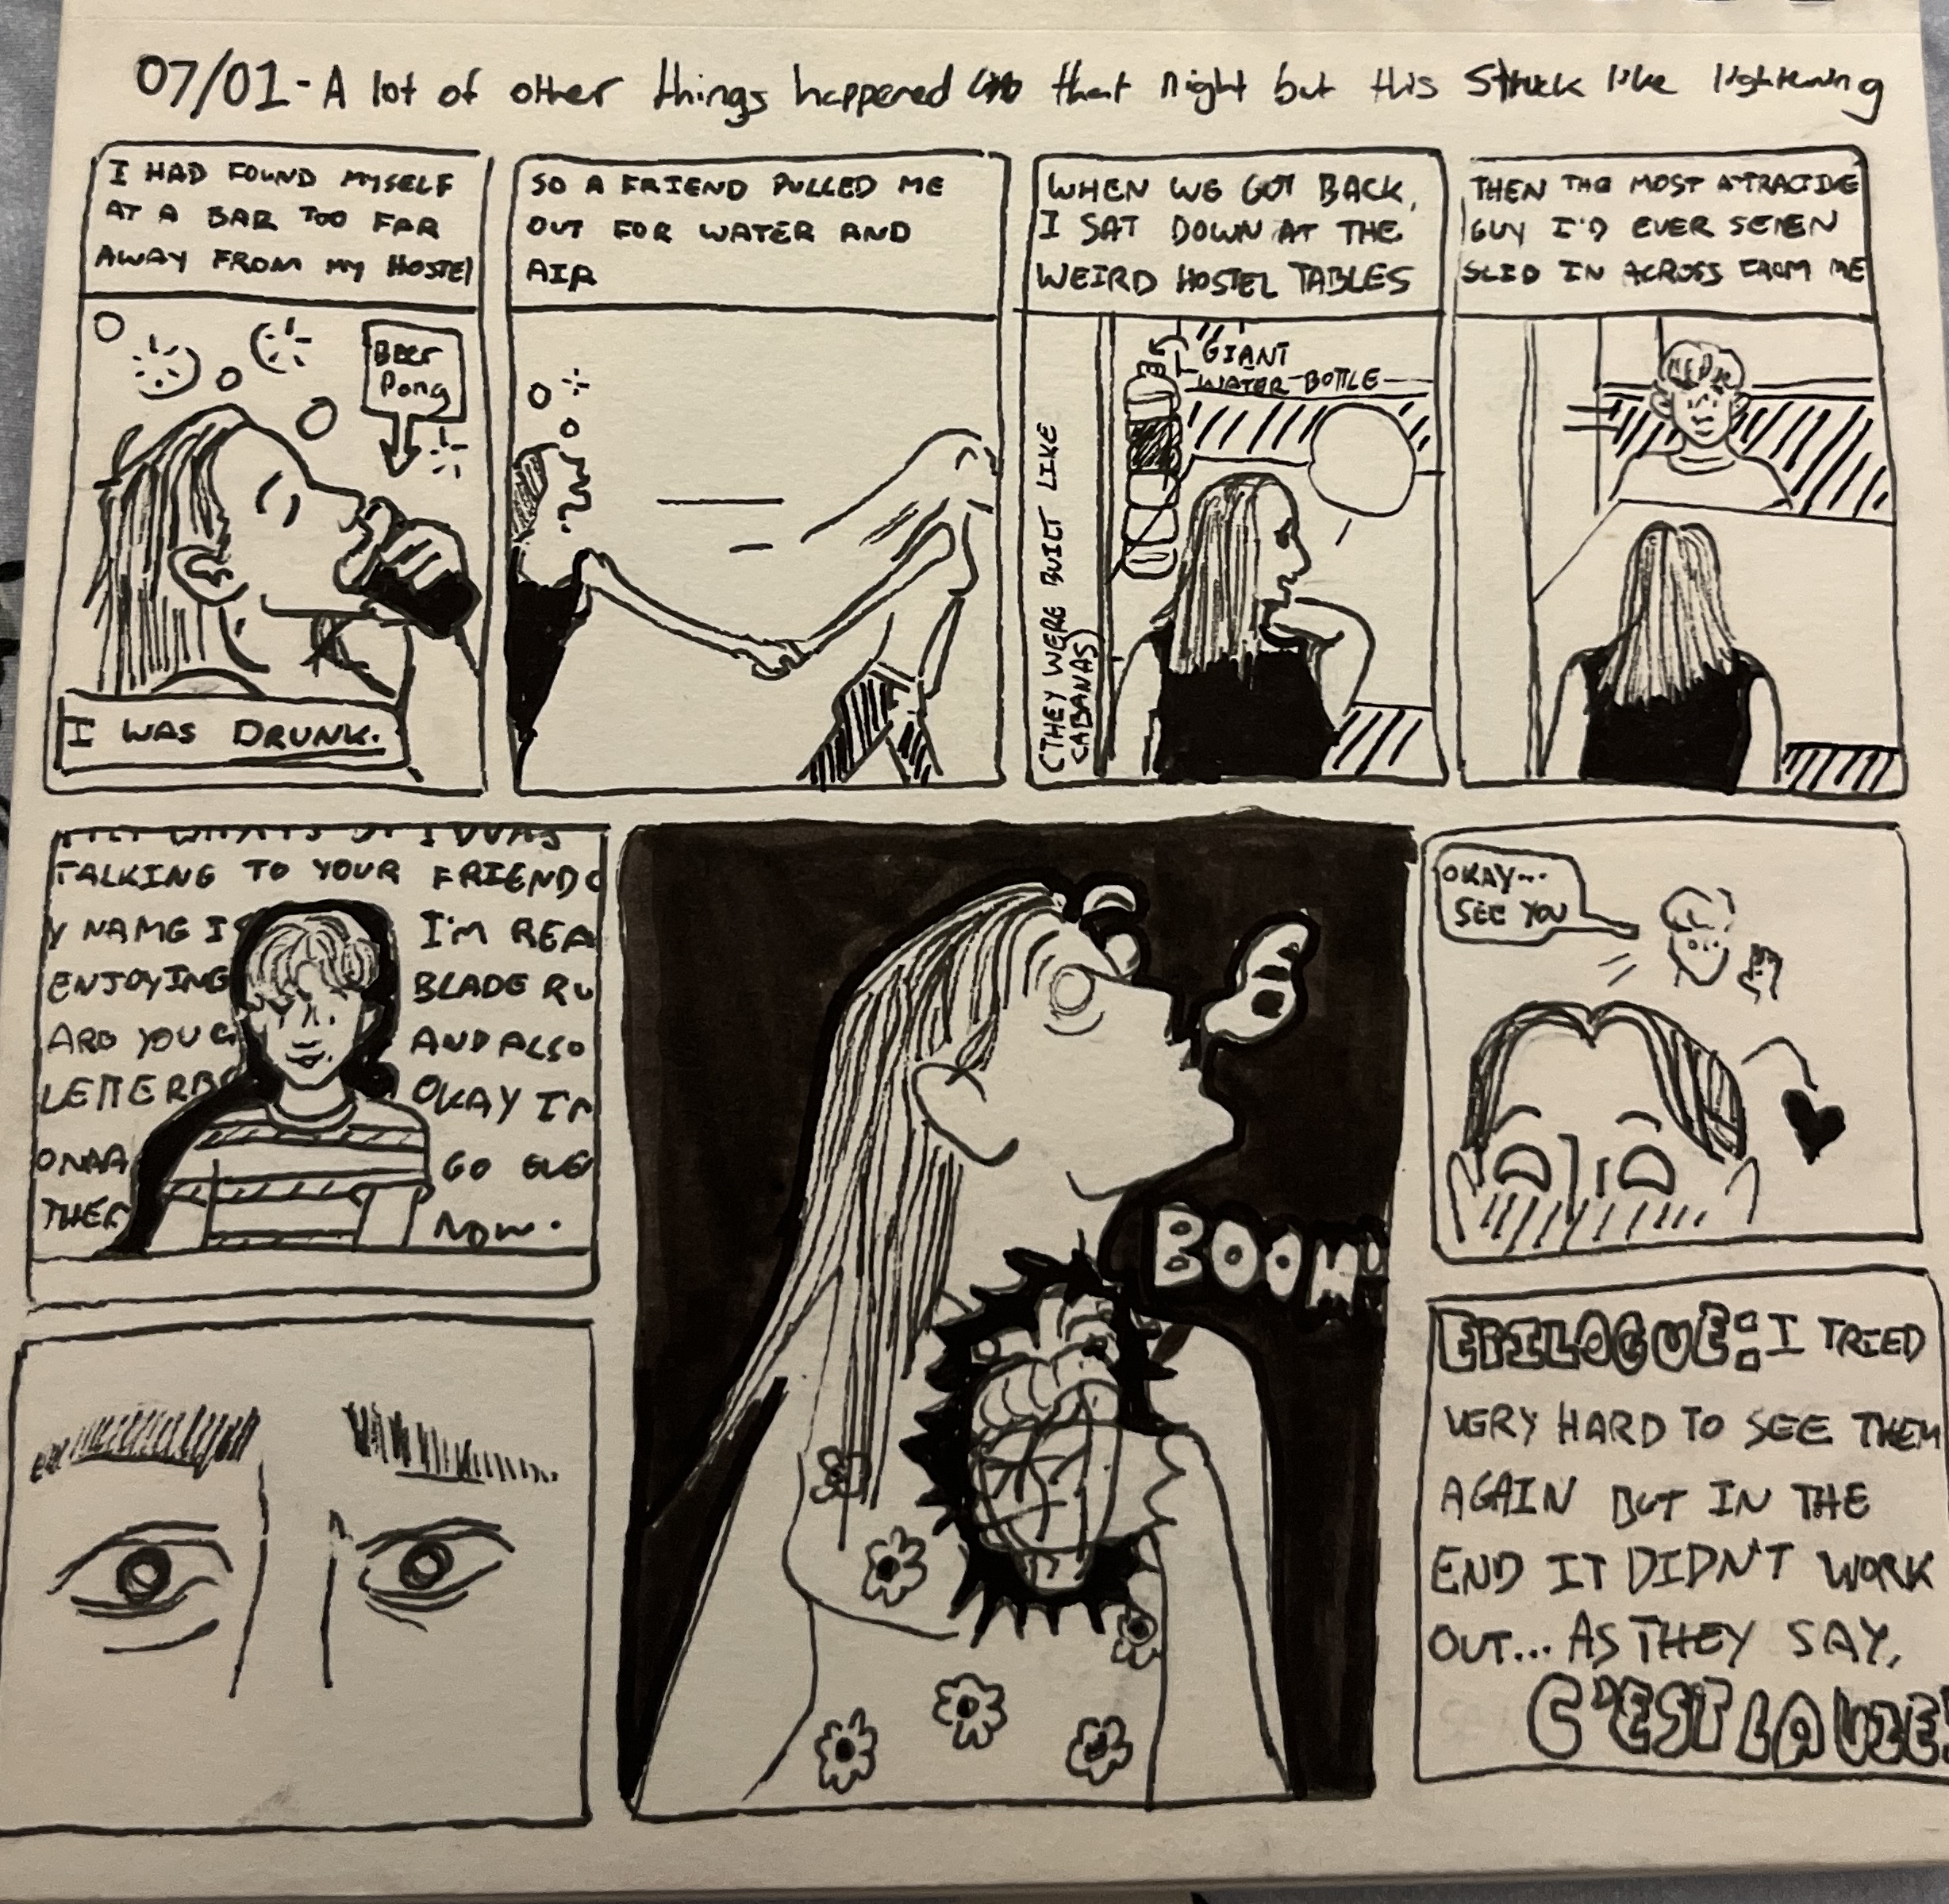 07/01 - A lot of other things happened that night but this struck like lightening
I HAD FOUND MYSELF
AT A BAR TOO FAR
AWAY FROM MY HOSTEL
Beer
Pong
I WAS DRUNK.
SO A FRIEND PULLED ME
OUT FOR WATER AND
AIR
WHEN WE GOT BACK,
I SAT DOWN AT THE
WEIRD HOSTEL TABLES
GIANT
WATER BOTTLE
(THEY WERE BUILT LIKE
CABANAS)
THEN THE MOST ATTRACTIVE
GUY I'D EVER SEEN
SLID IN ACROSS FROM ME
WHATS UP I WAS
TALKING TO YOUR FRIEND
Y NAME IS I'M REA
ENJOYING BLADE RU
ARD YOU G AND ALSO
LETTERBO OKAY I'M
GO OVER
THER NOW.
BOOM!
OKAY...
SEE YOU
EPILOGUE: I TRIED
VERY HARD TO SEE THEM
AGAIN BUT IN THE
END IT DIDN'T WORK
OUT... AS THEY SAY,
C'EST LA VIE!